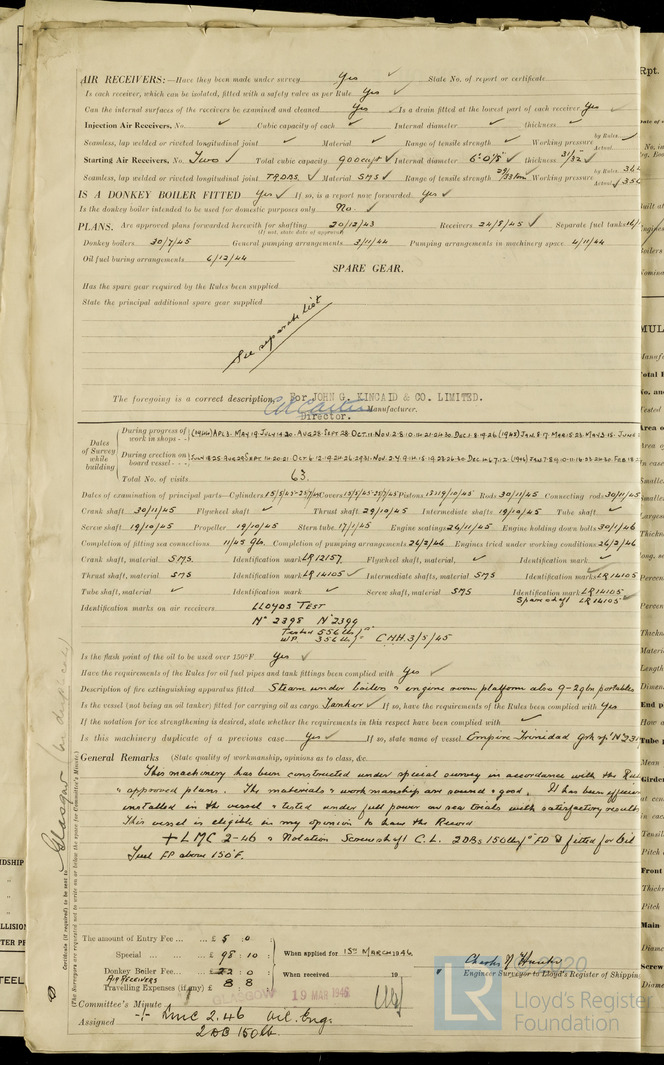 AIR RECEIVERS:—Have they been made under survey Yes ✓ State No. of report or certificate
Is each receiver, which can be isolated, fitted with a safety valve as per Rule Yes ✓
Can the internal surfaces of the receivers be examined and cleaned Yes ✓ Is a drain fitted at the lowest part of each receiver Yes ✓
Injection Air Receivers, No. ✓ Cubic capacity of each ✓ Internal diameter ✓ thickness ✓
Seamless, lap welded or riveted longitudinal joint ✓ Material ✓ Range of tensile strength ✓ Working pressure by Rules Actual
Starting Air Receivers, No. Two ✓ Total cubic capacity 900 cu ft ✓ Internal diameter 6'-0⅞" ✓ thickness 31/32" ✓
Seamless, lap welded or riveted longitudinal joint T.R.D.B.S. ✓ Material S.M.S ✓ Range of tensile strength 29/33 tons Working pressure by Rules Actual
IS A DONKEY BOILER FITTED Yes ✓ If so, is a report now forwarded Yes ✓
Is the donkey boiler intended to be used for domestic purposes only No ✓
PLANS. Are approved plans forwarded herewith for shafting 20/12/43 Receivers 24/8/45 ✓ Separate fuel tanks
(If not, state date of approval)
Donkey boilers 30/7/45 General pumping arrangements 3/11/44 Pumping arrangements in machinery space 4/11/44
Oil fuel burning arrangements 6/12/44
SPARE GEAR.
Has the spare gear required by the Rules been supplied
State the principal additional spare gear supplied
See separate list
The foregoing is a correct description, For JOHN G. KINCAID & CO. LIMITED.
Manufacturer.
Director.
Dates of Survey while building
During progress of work in shops - - (1944) APL 3. MAY 19 JULY 14.20. AUG 28 SEPT 28 OCT 11 NOV 2.8.10.14.21.24.30 DEC 1.8.19.26 (1945) JAN 8.17 MAR 15.23 MAY 3.15. JUNE
During erection on board vessel - - -
Total No. of visits 63.
Dates of examination of principal parts—Cylinders Covers Pistons Rods 30/11/45 Connecting rods 30/11/45
Crank shaft 30/11/45 Flywheel shaft ✓ Thrust shaft 29/10/45 Intermediate shafts 19/10/45 Tube shaft ✓
Screw shaft 19/10/45 Propeller 19/10/45 Stern tube 17/1/45 Engine seatings 26/11/45 Engine holding down bolts 30/1/46
Completion of fitting sea connections 11/45 Gls. Completion of pumping arrangements 26/2/46 Engines tried under working conditions 26/2/46
Crank shaft, material S.M.S. Identification mark LR 12157 Flywheel shaft, material ✓ Identification mark ✓
Thrust shaft, material S.M.S Identification mark LR 14105 ✓ Intermediate shafts, material S.M.S Identification marks LR 14105
Tube shaft, material ✓ Identification mark ✓ Screw shaft, material S.M.S Identification mark LR 14105
Spare shaft LR 14105 ✓
Identification marks on air receivers LLOYDS TEST
No 2398 No 2399
Tested 556 lb/□"
WP 356 lb/□" C.M.H. 3/5/45
Is the flash point of the oil to be used over 150°F. Yes ✓
Have the requirements of the Rules for oil fuel pipes and tank fittings been complied with Yes ✓
Description of fire extinguishing apparatus fitted Steam under boilers & engine room platform also 9-2gln portables
Is the vessel (not being an oil tanker) fitted for carrying oil as cargo Tanker ✓ If so, have the requirements of the Rules been complied with Yes
If the notation for ice strengthening is desired, state whether the requirements in this respect have been complied with ✓
Is this machinery duplicate of a previous case Yes ✓ If so, state name of vessel Empire Trinidad
General Remarks (State quality of workmanship, opinions as to class, &c.
This machinery has been constructed under special survey in accordance with the Rules
& approved plans. The materials & workmanship are sound & good. It has been efficiently
installed in the vessel & tested under full power on sea trials with satisfactory results
This vessel is eligible in my opinion to have the Record
+ LMC 2-46 & Notation Screwshaft C.L. 2DBs 150 lb/□" FD & fitted for Oil
Fuel FP above 150°F.
Glasgow
Certificate (if required) to be sent to
(The Surveyors are requested not to write on or below the space for Committee's Minute.)
The amount of Entry Fee ... ... £ 5 : 0 :
Special ... ... £ 98 : 10 : When applied for 15TH MARCH 1946
Donkey Boiler Fee... £ 22 : 0 :
AIR RECEIVERS
Travelling Expenses (if any) £ 8 8 When received 19
Engineer Surveyor to Lloyd's Register of Shipping
Committee's Minute GLASGOW 19 MAR 1946
Assigned + LMC 2.46 Oil Eng.
2 DB 150 lb.
LR
Lloyd's Register
Foundation
2020
Rpt.